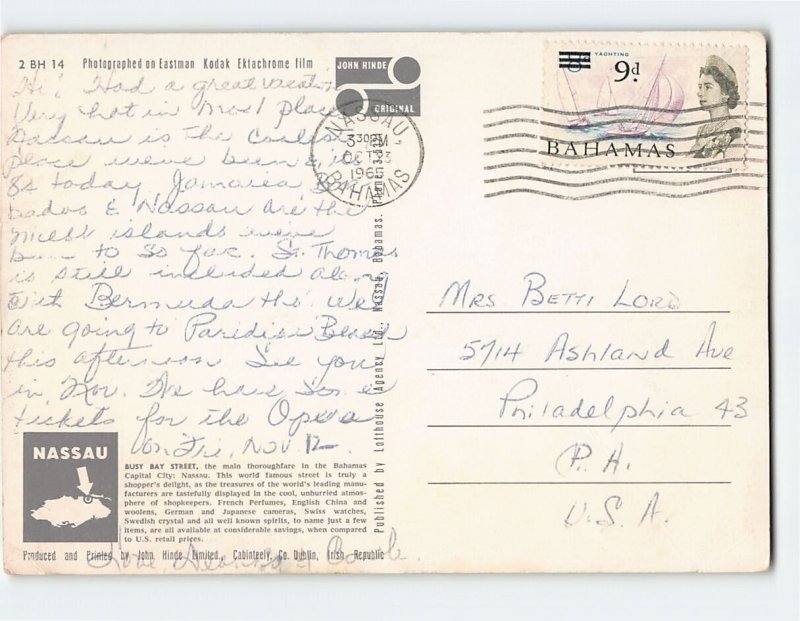 2 BH 14 Photographed on Eastman Kodak Ektachrome film
JOHN HINDE
ORIGINAL
Hi! Had a great vacation
Very hot in most places
Nassau is the coolest
place weve been & its
84 today. Jamaica, Bar
bados & Nassau are the
nicest islands weve
been to so far. St. Thomas
is still included along
with Bermuda tho. We
are going to Paridise Beach
this afternoon See you
in Nov. We have some
tickets for the Opera
on Fri, Nov 12
Love,
NASSAU
3 30PM
OCT 13
1965
BAHAMAS
8d YACHTING
9d
BAHAMAS
Mrs Betti Lord
5714 Ashland Ave
Philadelphia 43
P.A.
U.S.A.
NASSAU
BUSY BAY STREET, the main thoroughfare in the Bahamas
Capital City: Nassau. This world famous street is truly a
shopper's delight, as the treasures of the world's leading manu-
facturers are tastefully displayed in the cool, unhurried atmos-
phere of shopkeepers. French Perfumes, English China and
woolens, German and Japanese cameras, Swiss watches,
Swedish crystal and all well known spirits, to name just a few
items, are all available at considerable savings, when compared
to U.S. retail prices.
Produced and Printed by John Hinde Limited, Cabinteely, Co. Dublin, Irish Republic
Published by Lofthouse Agency Ltd., Nassau, Bahamas.